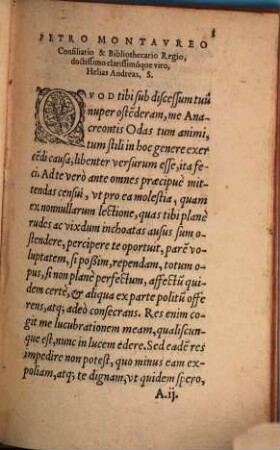 3
PETRO MONTAVREO
Consiliario & Bibliothecario Regio,
doctissimo clarissimóque viro,
Helias Andreas, S.
QVOD tibi sub discessum tuũ
nuper ostẽderam, me Ana
creontis Odas tum animi,
tum stili in hoc genere exer
cẽdi causa, libenter versurum esse, ita fe
ci. Ad te verò ante omnes præcipuè mit
tendas censui, vt pro ea molestia, quam
ex nonnullarum lectione, quas tibi planè
rudes ac vixdum inchoatas ausus sum o-
stendere, percipere te oportuit, parẽ vo-
luptatem, si possim, rependam, totum o-
pus, si non planè perfectum, affectũ qui
dem certè, & aliqua ex parte politũ offe
rens, atq; adeò consecrans. Res enim co-
git me lucubrationem meam, qualiscun-
que est, nunc in lucem edere. Sed eadẽ res
impedire non potest, quo minus eam ex-
poliam, atq; te dignam, vt quidem spero,
A.ij.